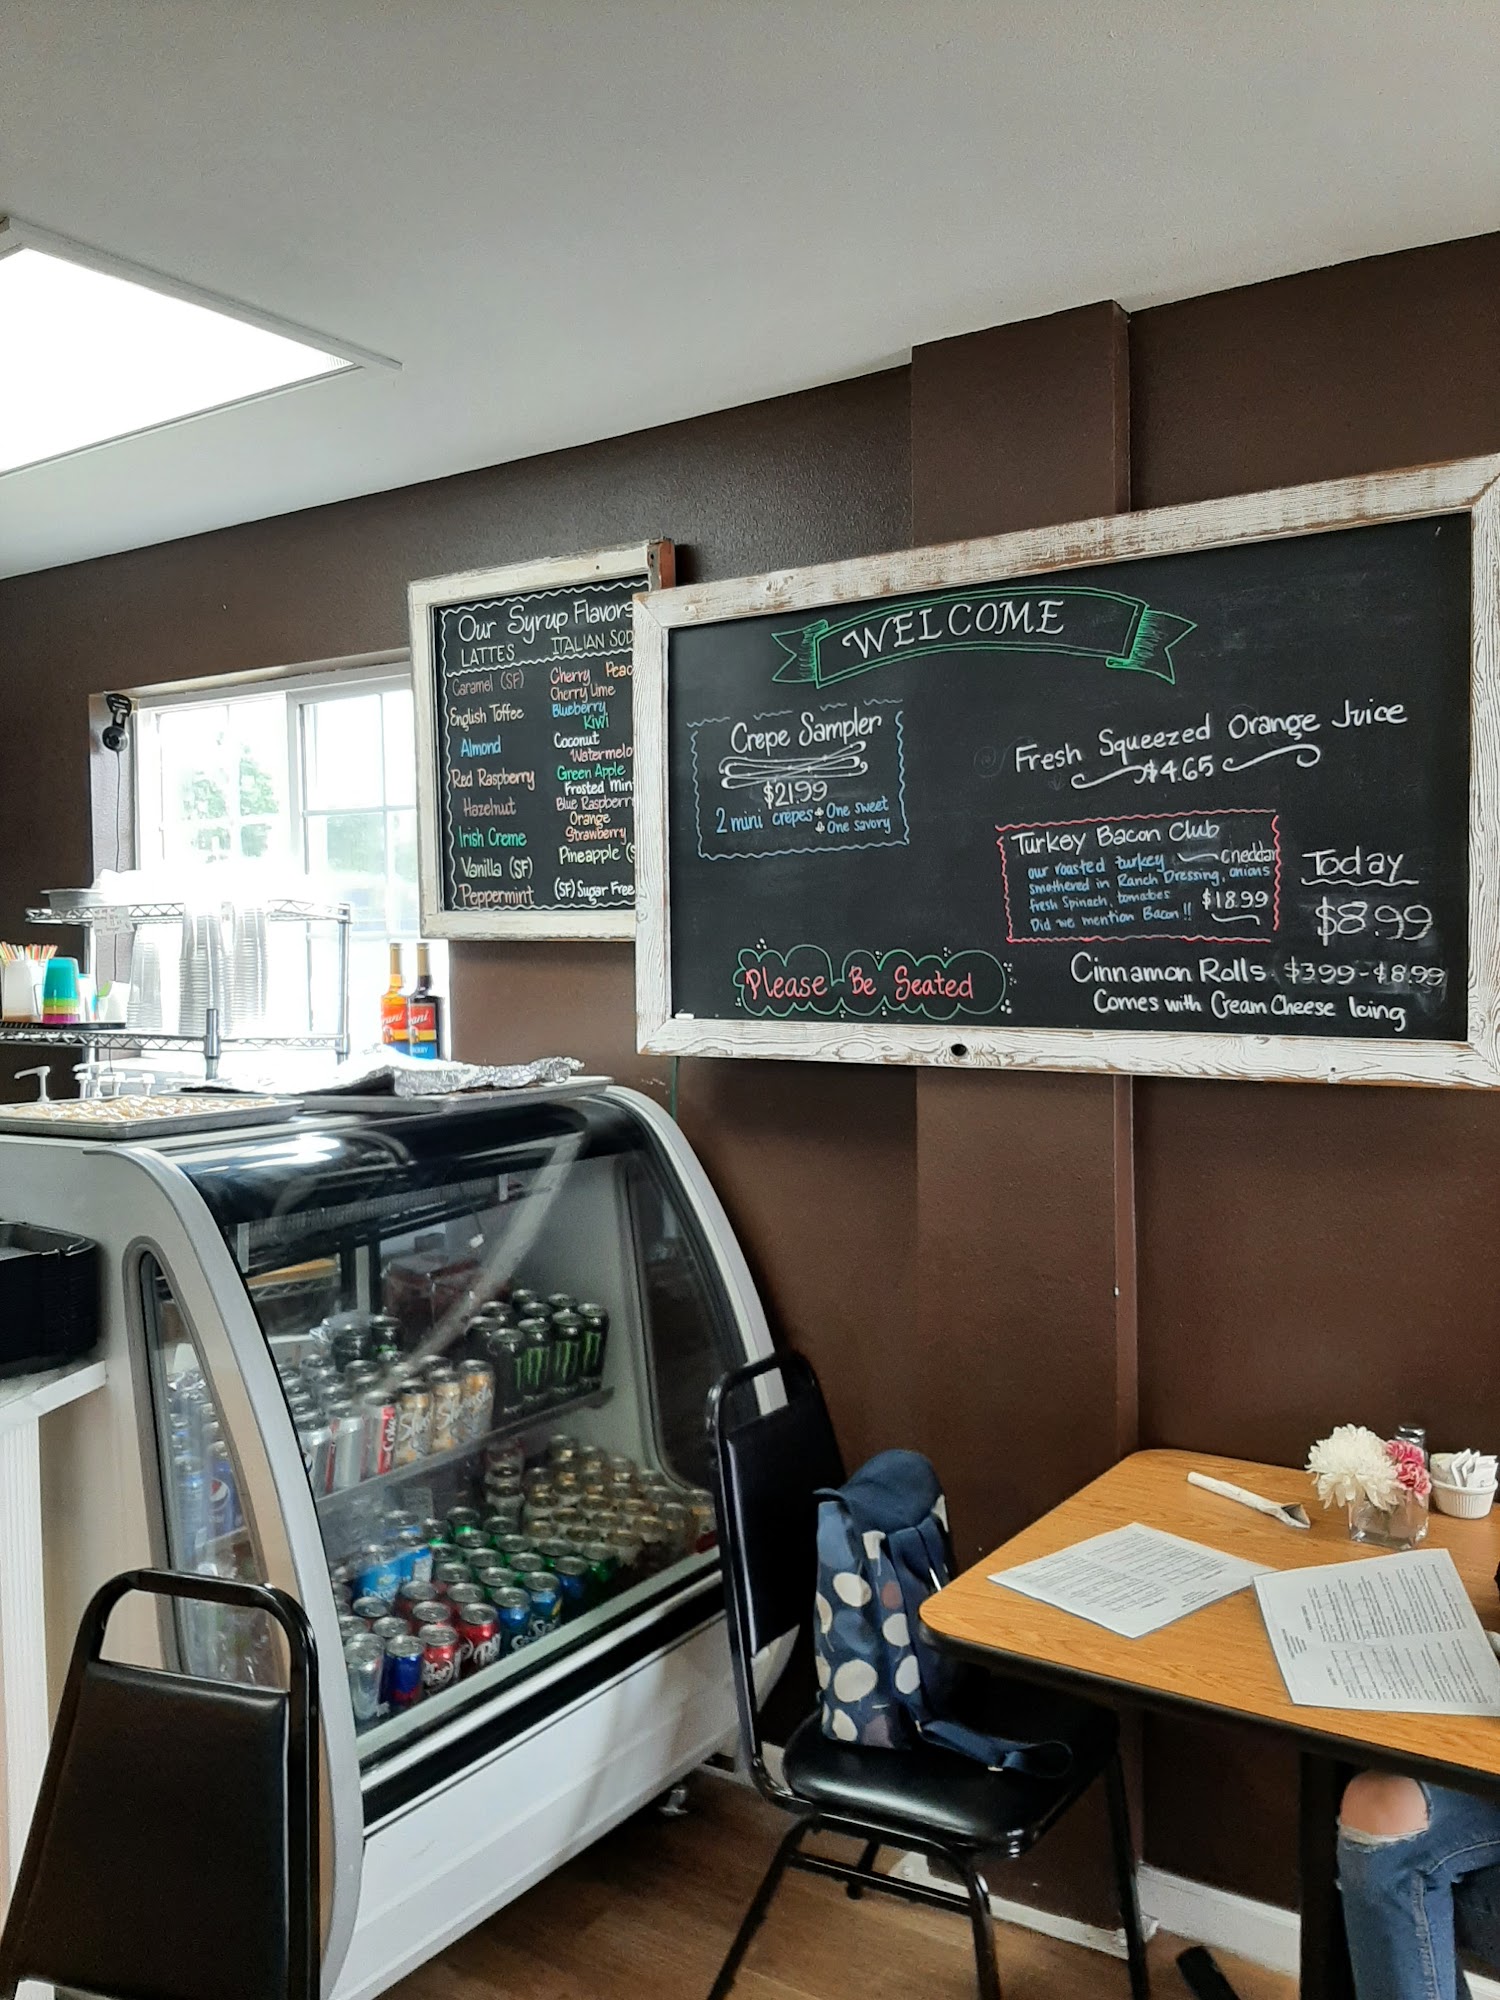 Our Syrup Flavors
LATTES
Caramel (SF)
English Toffee
Almond
Red Raspberry
Hazelnut
Irish Creme
Vanilla (SF)
Peppermint
ITALIAN SOD
Cherry Peac
Cherry Lime
Blueberry
Kiwi
Coconut
Watermelo
Green Apple
Frosted Min
Blue Raspberr
Orange
Strawberry
Pineapple (S
(SF) Sugar Free
WELCOME
Crepe Sampler
$21.99
2 mini crepes One sweet
One savory
Please Be Seated
Fresh Squeezed Orange Juice
$4.65
Turkey Bacon Club
our roasted turkey cheddar
smothered in Ranch Dressing, onions
fresh Spinach, tomatoes $18.99
Did we mention Bacon!!
Today
$8.99
Cinnamon Rolls $3.99-$8.99
Comes with Cream Cheese Icing